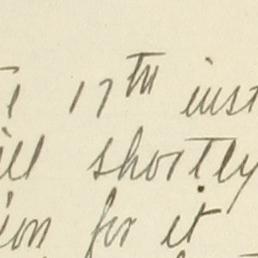 17th inst
ill shortly
ion for it